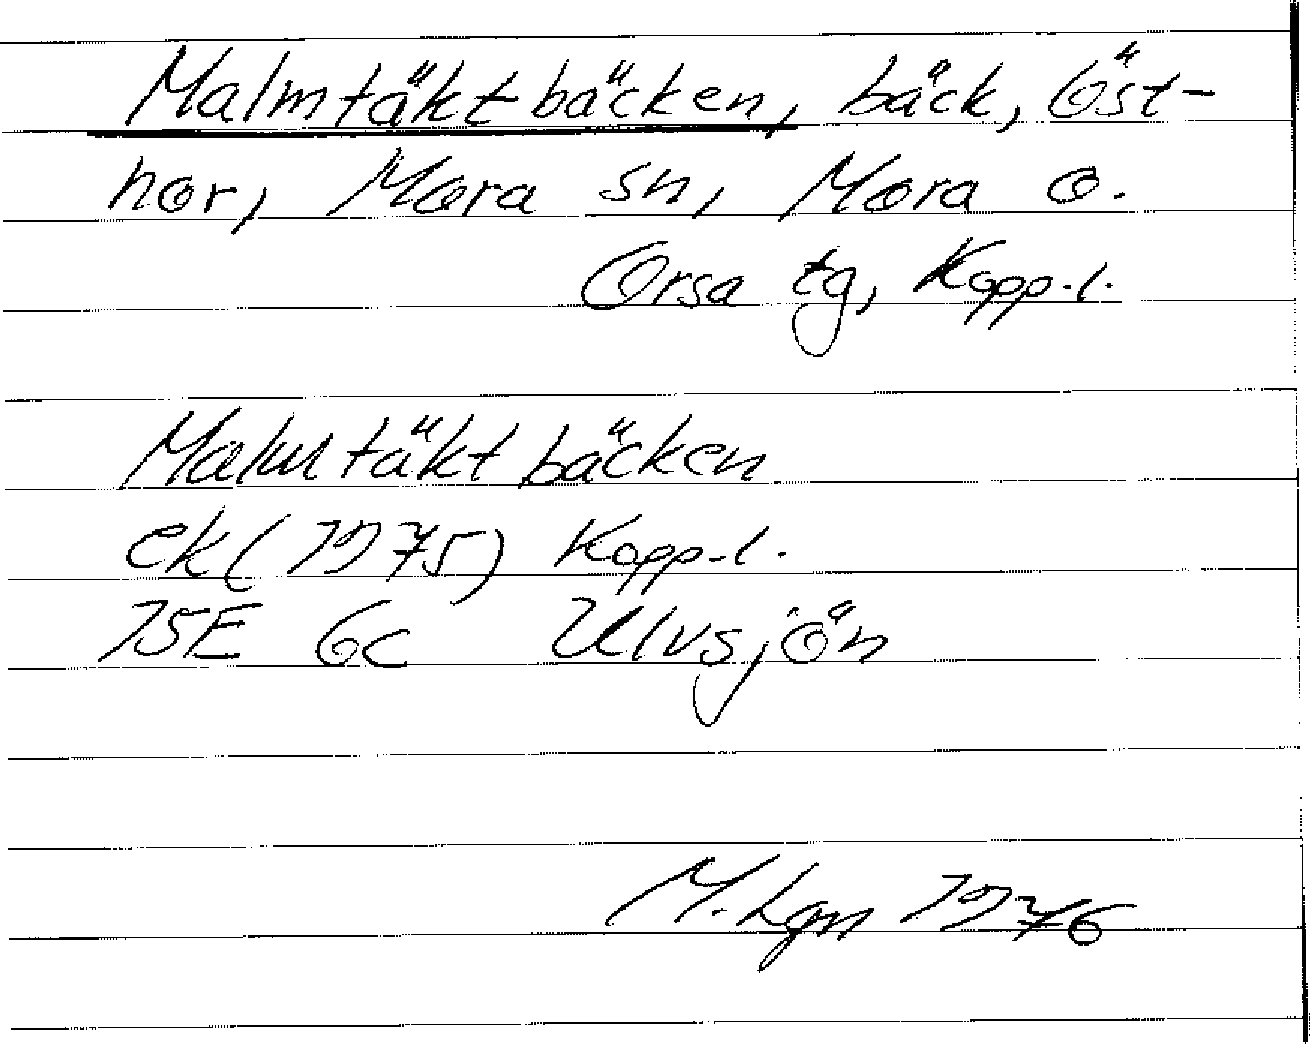 Malmtäktbäcken, bäck, Öst-
nor, Mora sn, Mora o.
Orsa tg, Kopp.l.
Malmtäktbäcken
ek (1975) Kopp.l.
15E 6c Ulvsjön
M. Lgn 1976